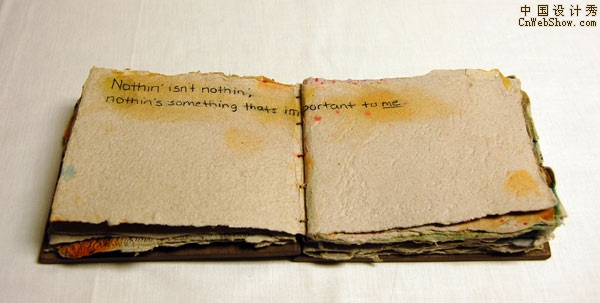 中国设计秀
CnWebShow.com
Nothin' isnt nothin',
nothin's something thats important to me.